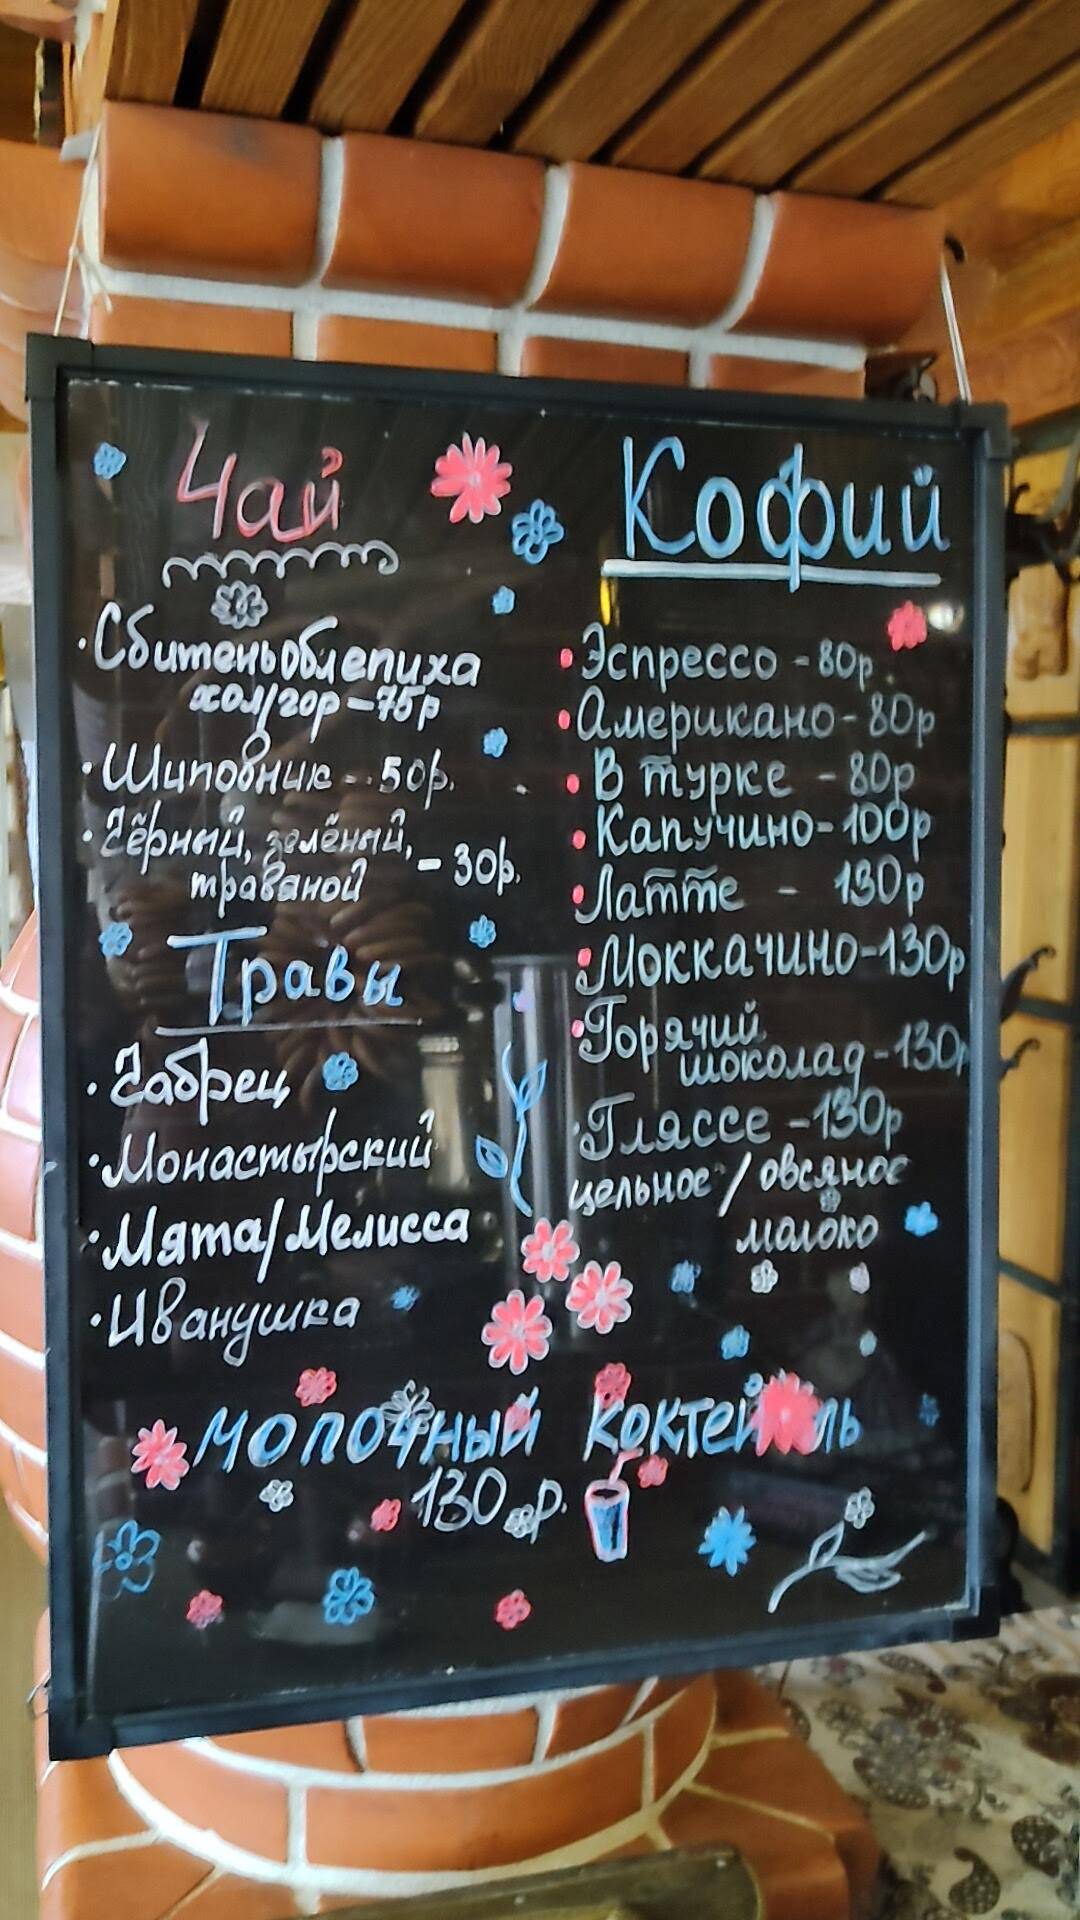 Чай
· Сбитень облепиха
хол/гор - 75р
· Шиповник - 50р.
· Чёрный, зелёный,
травяной - 30р.
Травы
· Чабрец
· Монастырский
· Мята/Мелисса
· Иванушка
Кофий
· Эспрессо - 80р
· Американо - 80р
· В турке - 80р
· Капучино - 100р
· Латте - 130р
· Моккачино - 130р
· Горячий
шоколад - 130р
· Гляссе - 130р
цельное / овсяное
молоко
Молочный коктейль
130 р.